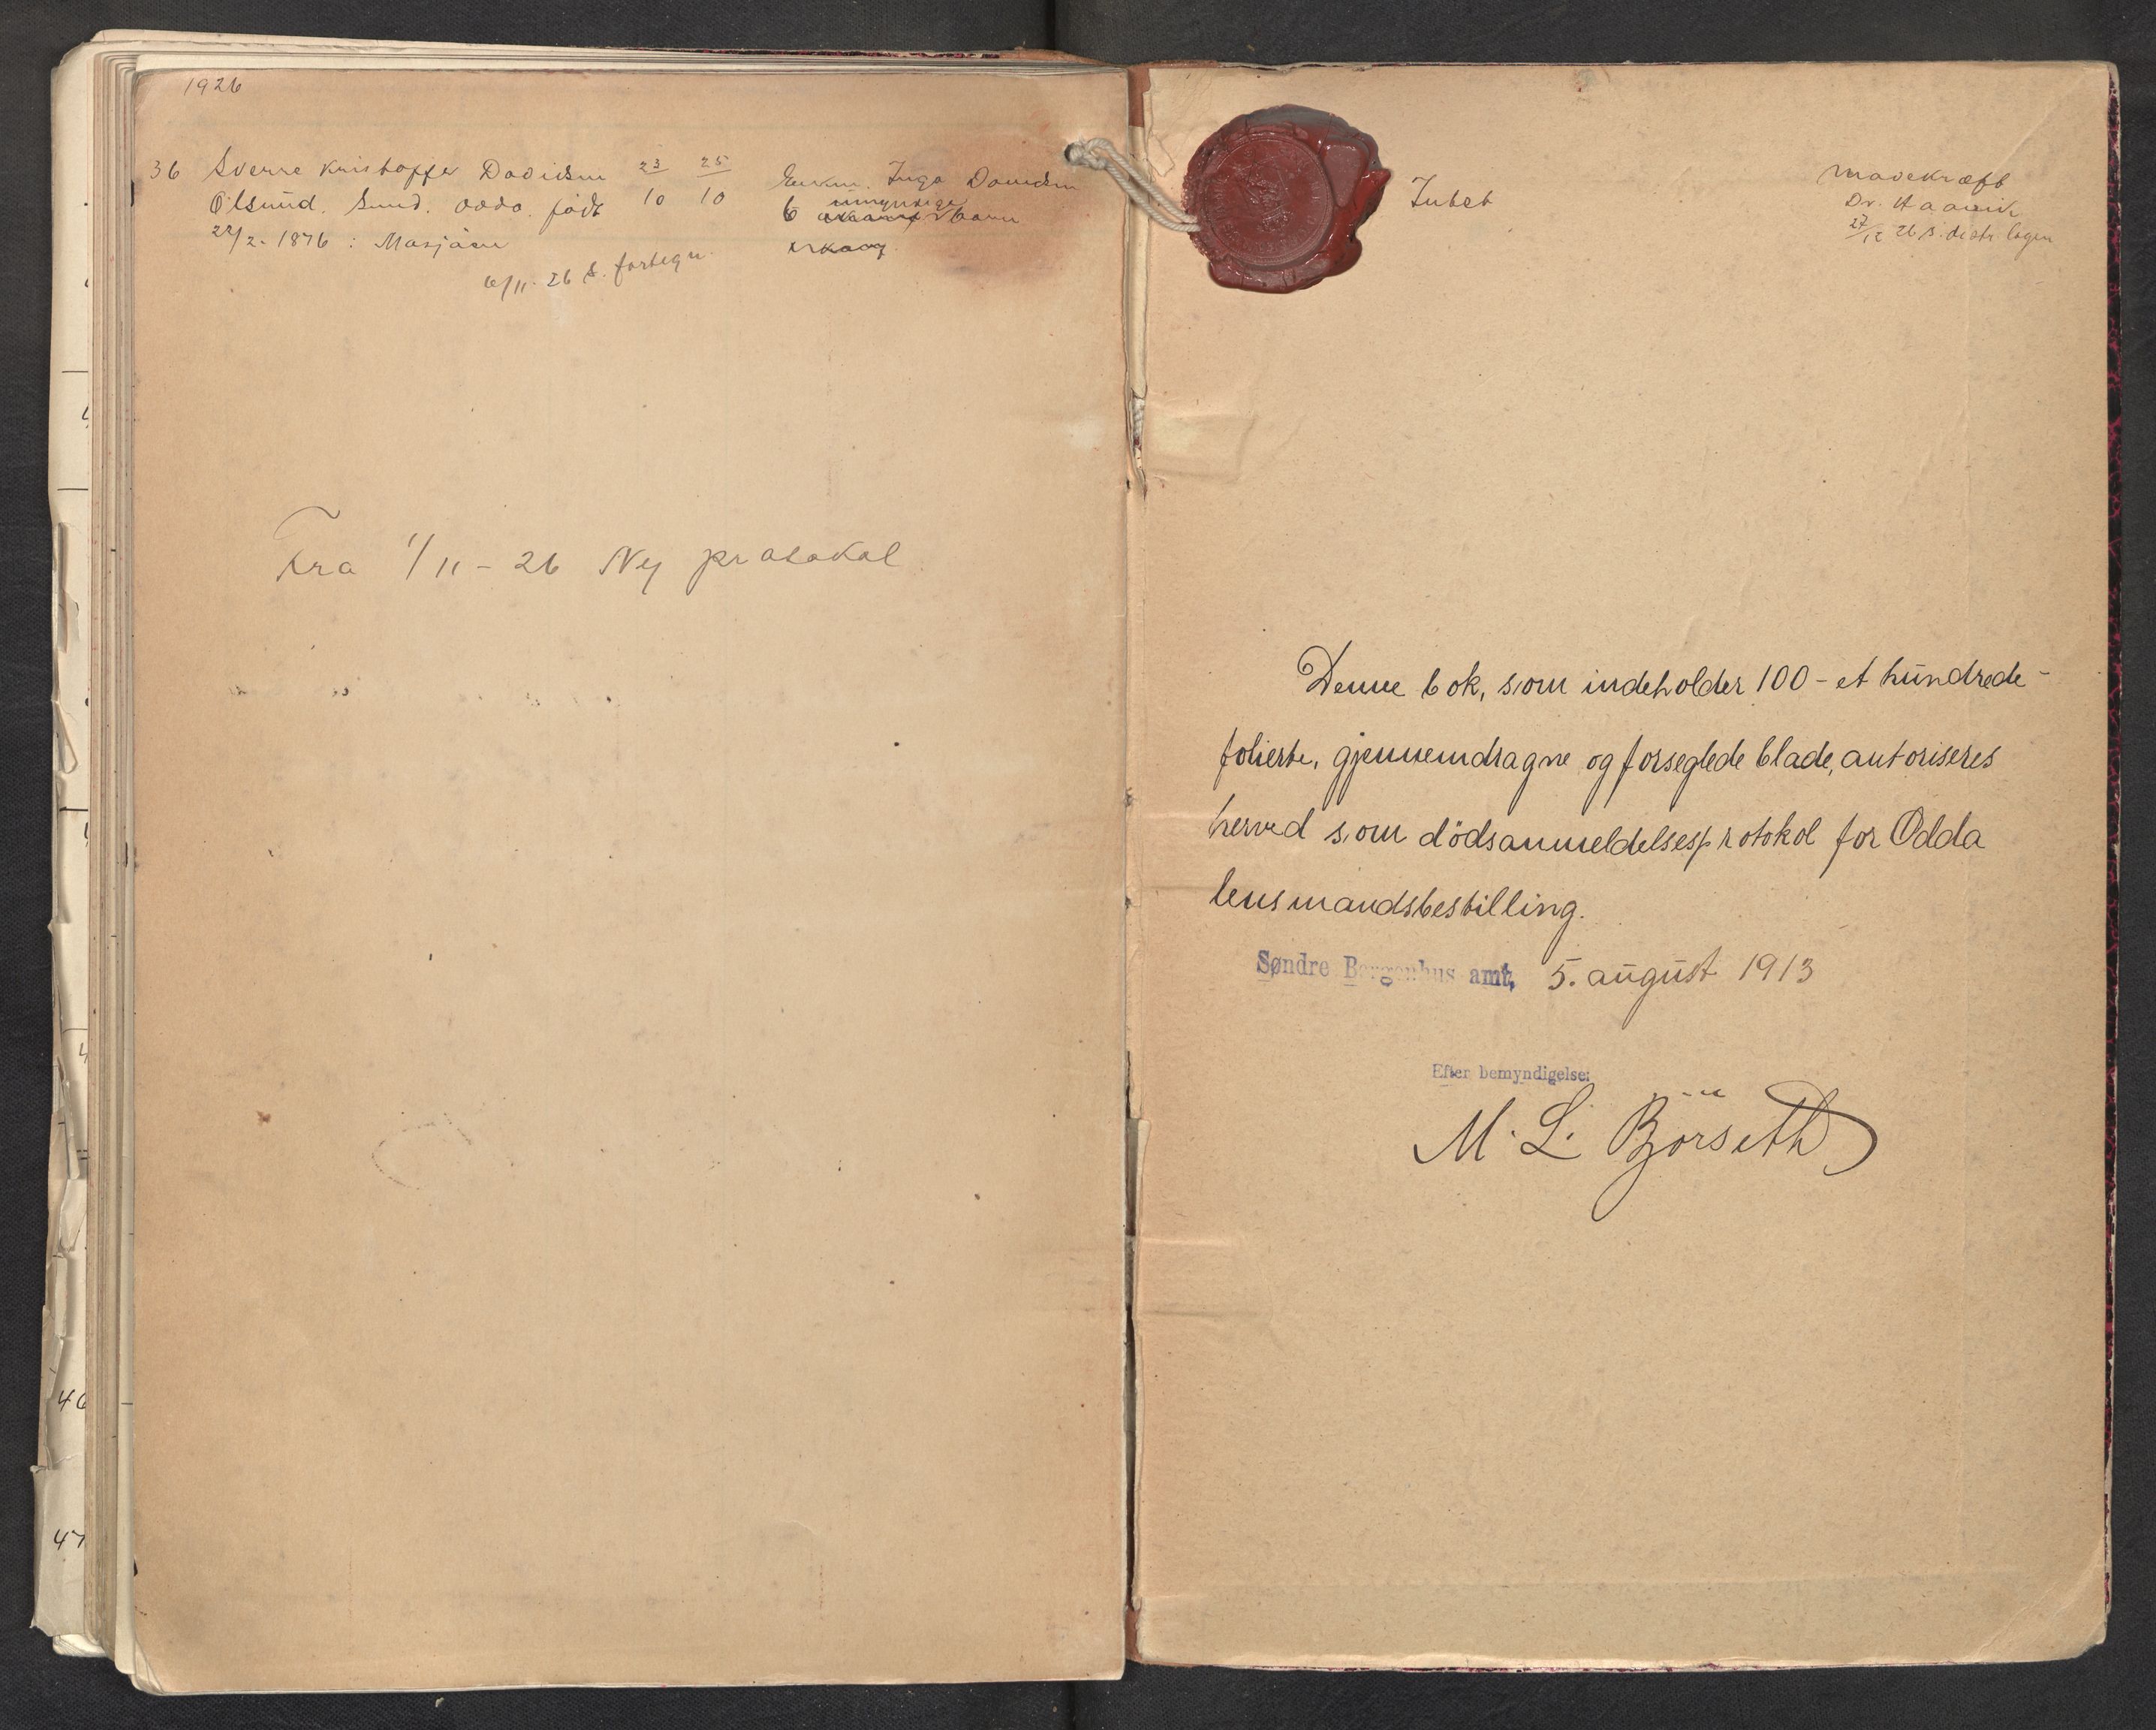 1926
36 Sverre Kristoffer Davidsen 23 25 Enkem. Inga Davidsen
Olsund. Sund. Odda. født 10 10 6 umyndige barn
22/2-1876 i Mosjøen
6/11-26 S. fortegn.
Fra 1/11-26 Ny protokol
Intet
Mavekræft
Dr. Haavik
27/12 26 s. distr. lægen
Denne bok, som indeholder 100 - et hundrede -
folierte, gjennemdragne og forseglede blade, autoriseres
herved som dödsanmeldelsesprotokol for Odda
lensmandsbestilling.
Søndre Bergenhus amt, 5. august 1913
Efter bemyndigelse:
M. L. Börseth
46
47